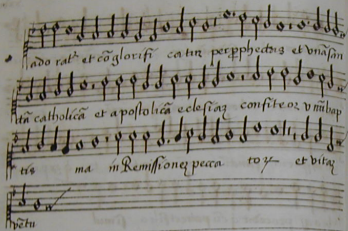 ado rat~ et cõ glorifi ca tur per pphectas et unã san
ctã catholicã et apostolicã eclesiaz confiteor unũ bap
tis ma in Remissionez pecca toꝝ et vitaz
vētu